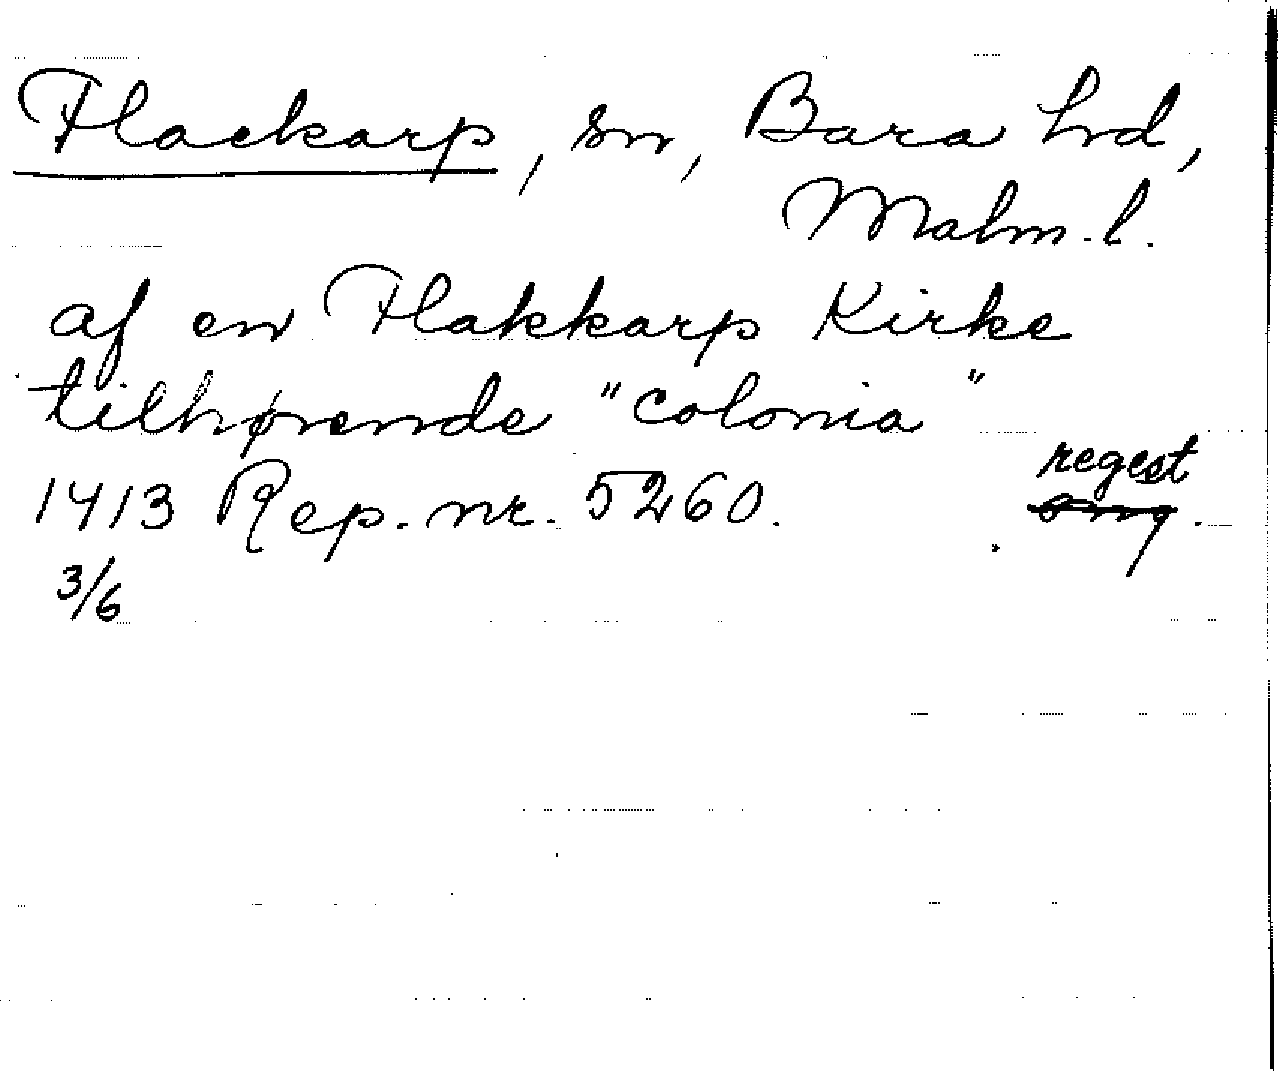 Flackarp, sn, Bara hd,
Malm. l.
af en Flakkarp Kirke
tilhørende "colonia"
regest
1413 Rep. nr. 5260. omg.
3/6